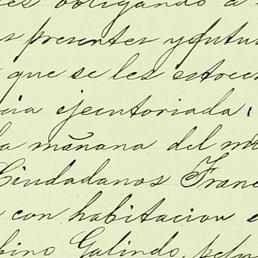 es obligando a
s presentes y futu
que se les estorce
cia ejecutoriada,
la mañana del m
Ciudadanos Franc
con habitacion e
bino Galindo,